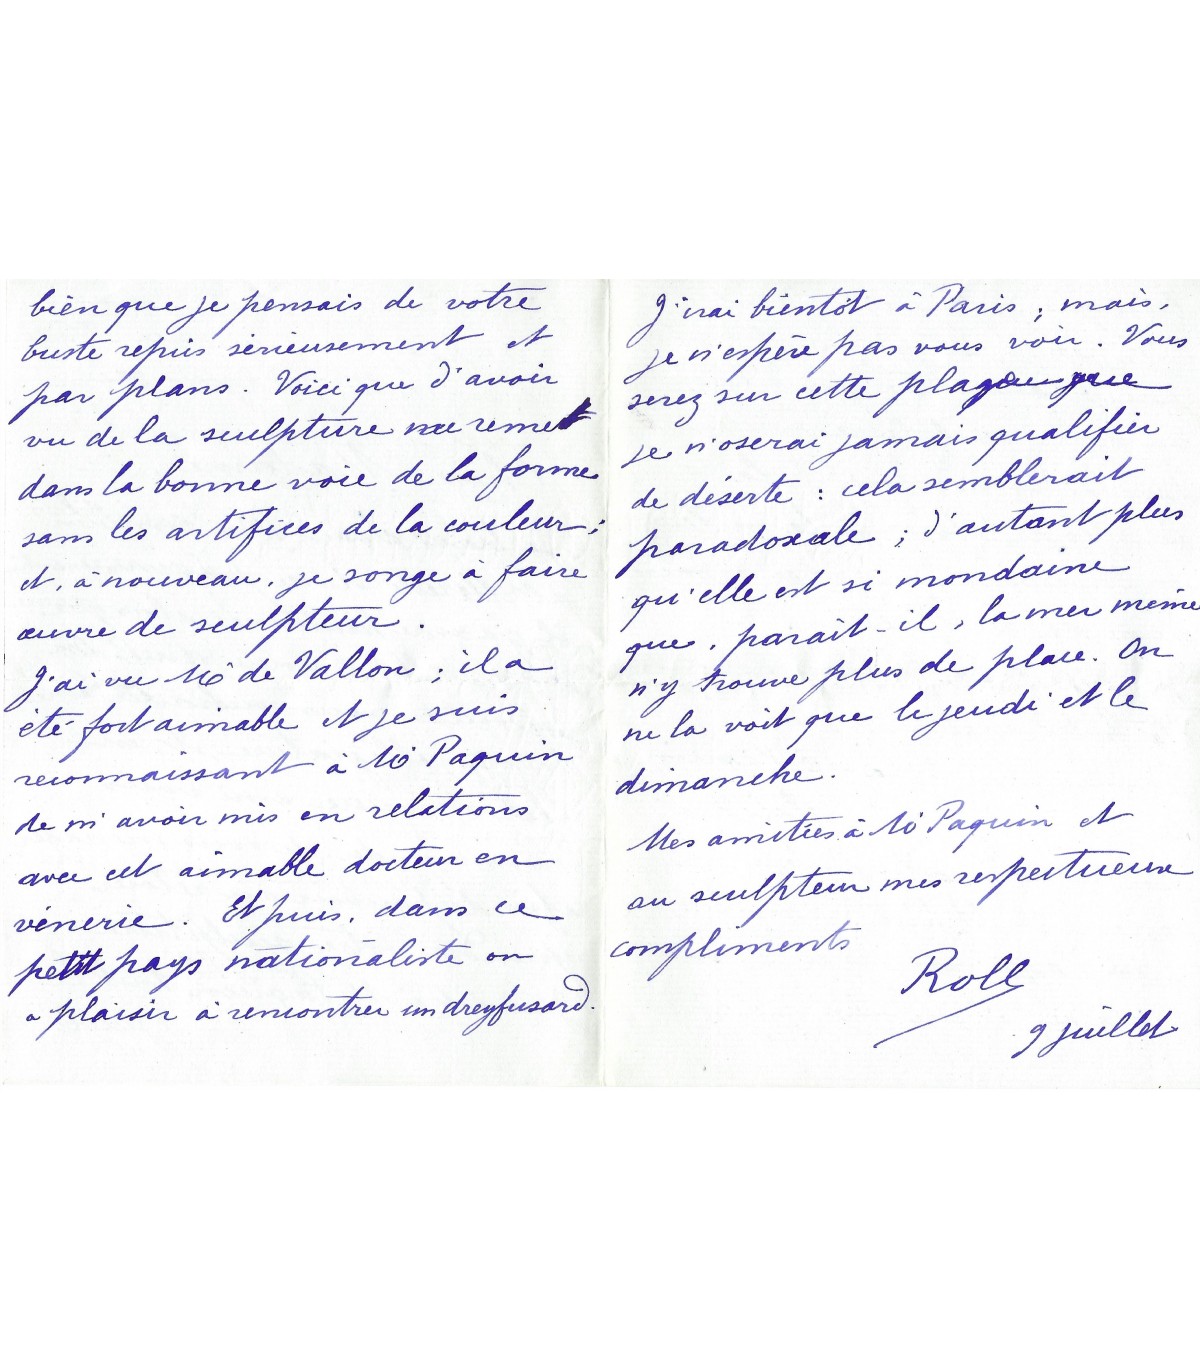 bien que je pensais de votre
buste repris sérieusement et
par plans. Voici que d'avoir
vu de la sculpture me remet
dans la bonne voie de la forme
sans les artifices de la couleur ;
et, à nouveau, je songe à faire
œuvre de sculpteur.
J'ai vu Mr de Vallon ; il a
été fort aimable et je suis
reconnaissant à Mr Paquin
de m'avoir mis en relations
avec cet aimable docteur en
vénerie. Et puis, dans ce
petit pays nationaliste on
a plaisir à rencontrer un dreyfusard.
J'irai bientôt à Paris ; mais,
je n'espère pas vous voir. Vous
serez sur cette plage que
je n'oserai jamais qualifier
de déserte : cela semblerait
paradoxale ; d'autant plus
qu'elle est si mondaine
que, paraît-il, la mer même
n'y trouve plus de place. On
ne la voit que le jeudi et le
dimanche.
Mes amitiés à Mr Paquin et
au sculpteur mes respectueux
compliments
Roll
9 juillet